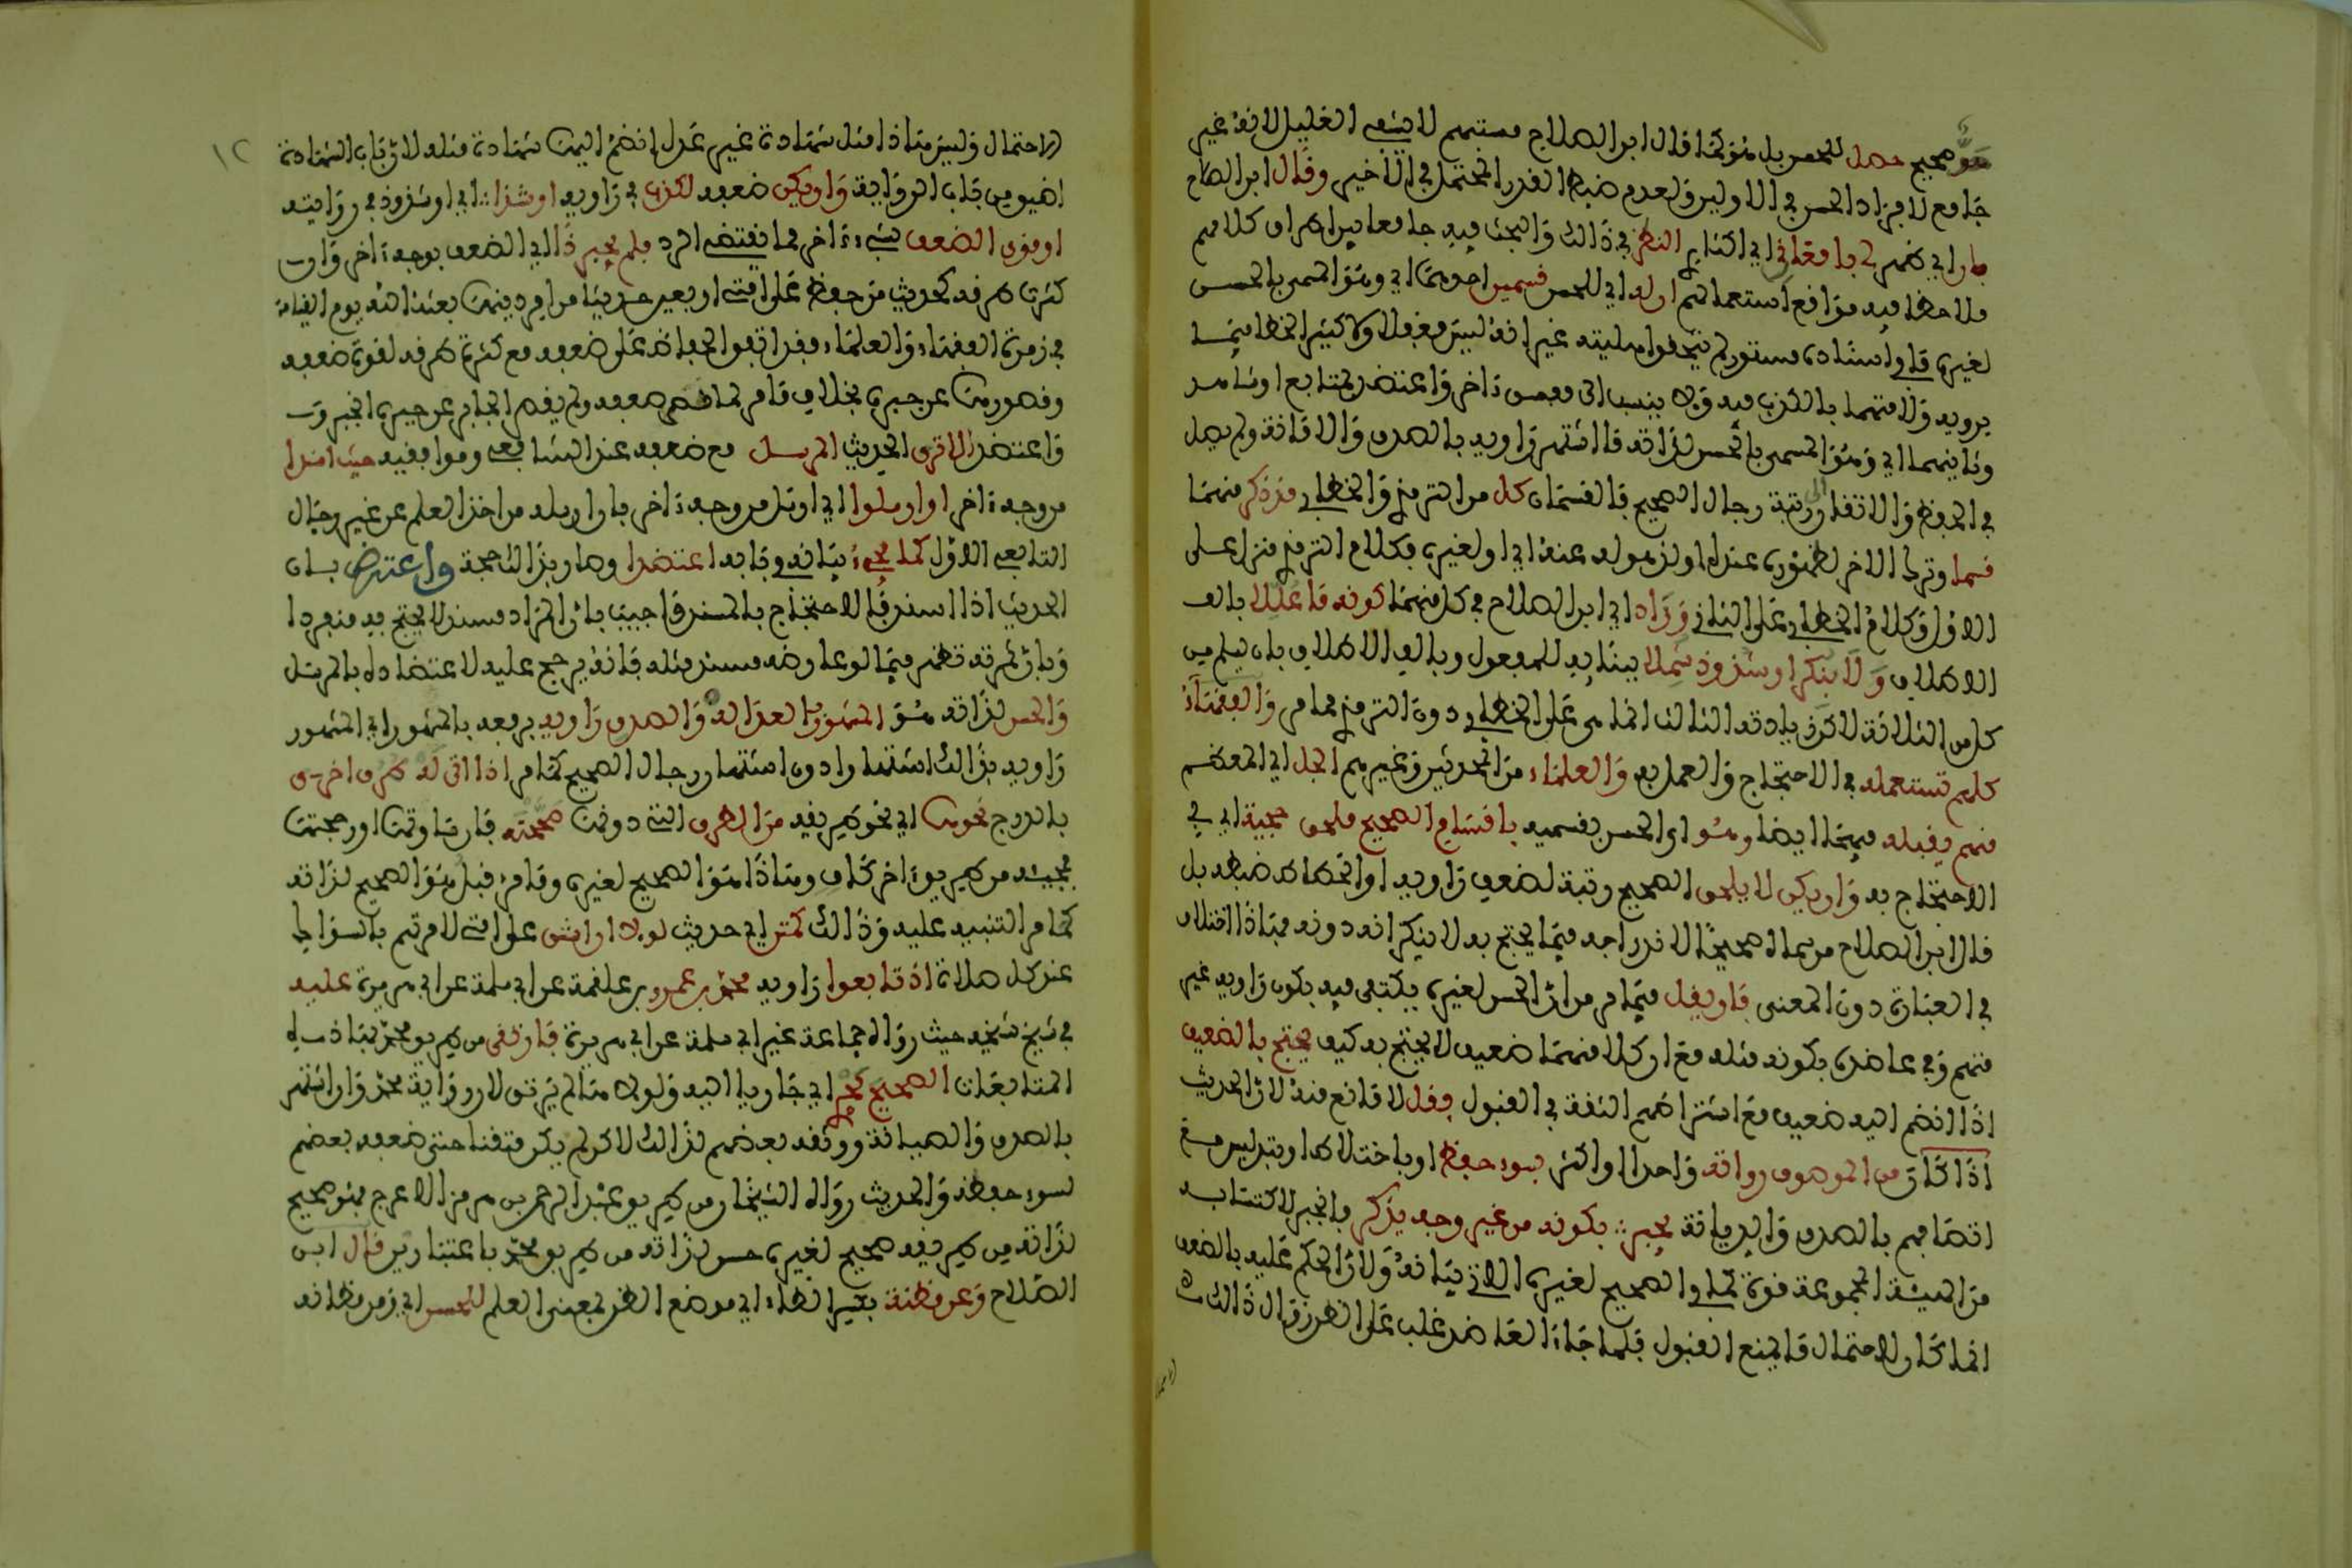 صحيح حصل للحسن بل هو كما قال ابن الصلاح مستبهم لا يشفي الغليل لانه غير
جامع لافراد الحسن في الاولين ولعدم ضبط القدر المحتمل في الاخير وقال ابن الصلاح
بان اي ظهر لي بامعاني اي اكثاري النظر في ذلك والبحث فيه جامعا بين اطراف كلامهم
ملاحظا فيه مواقع استعمالهم ان له اي للحسن قسمين احدهما اي وهو المسمى بالحسن
لغيره ما في اسناده مستور لم تتحقق اهليته غير انه ليس مغفلا ولا كثير الخطا فيما
يرويه ولا متهما بالكذب فيه ولا ينسب الى مفسق ءاخر واعتضد بمتابع او شاهد
وثانيهما اي وهو المسمى بالحسن لذاته ما اشتهر راويه بالصدق والامانة ولم يصل
في الحفظ والاتقان الى رتبة رجال الصحيح فالقسمان كل من الترمذي والخطابي قد ذكر منهما
قسما وترك الاخر لظهوره عنده او لذهوله عنه اي او لغيره فكلام الترمذي منزل على
الاول وكلام الخطابي على الثاني وزاد اي ابن الصلاح في كل منهما كونه ما عللا بالف
الاطلاق ولا بنكر او شذوذ شملا ببنائه للمفعول وبالف الاطلاق بان يسلم من
كل من الثلاثة لاكن زيادته الثالث انما هي على الخطابي دون الترمذي لما مر والفقهاء
كلهم تستعمله في الاحتجاج والعمل به والعلماء من المحدثين وغيرهم الجل اي المعظم
منهم يقبله فيهما ايضا وهو اي الحسن بقسميه باقسام الصحيح ملحق حجية اي في
الاحتجاج به وان يكن لا يلحق الصحيح رتبة لضعف راويه او انحطاط ضبطه بل
قال ابن الصلاح من سماه صحيحا لاندراجه فيما يحتج به لا ينكر انه دونه فهاذا اختلاف
في العبارة دون المعنى فان يقل فيما مر من ان الحسن لغيره يكتفى فيه بكون راويه غير
متهم وفي عاضده بكونه مثله مع ان كلا منهما ضعيف لا يحتج به كيف يحتج بالضعيف
اذا انضم اليه ضعيف مع اشتراطهم الثقة في القبول فقل لا مانع منه لان الحديث
اذا كان من الموصوف رواته واحدا او اكثر بسوء حفظ او باختلاط او بتدليس مع
اتصافهم بالصدق والديانة يجبر بكونه من غير وجه يذكر فانجبر لاكتسابه
من الهيئة المجموعة قوة كما في الصحيح لغيره الاتي بيانه ولان الحكم عليه بالضعف
انما كان لاحتمال ما يمنع القبول فلما جاء العاضد غلب على الظن زوال ذلك
١٢
الاحتمال وليس هذا مثل شهادة غير عدل انضم اليها شهادة مثله لان باب الشهادة
اضيق من باب الرواية وان يكن ضعفه لكذب في راويه او شذا اي او شذوذ في روايته
او قوي الضعف بشيء ءاخر مما يقتضي الرد فلم يجبر ذا اي الضعف بوجه ءاخر وان
كثرت طرقه كحديث من حفظ على امتي اربعين حديثا من امر دينها بعثه الله يوم القيامة
في زمرة الفقهاء والعلماء فقد اتفق الحفاظ على ضعفه مع كثرة طرقه لقوة ضعفه
وقصورها عن جبره بخلاف ما مر لما خف ضعفه ولم يقصر الجابر عن جبره انجبر و
واعتضد الا ترى الحديث المرسل مع ضعفه عند الشافعي وموافقيه حيث اسندا
من وجه ءاخر او ارسلوا اي او ارسل من وجه ءاخر بان ارسله من اخذ العلم عن غير رجال
التابعي الاول كما يجيء بيانه في بابه اعتضدا وصار بذالك حجة واعترض بان
الحديث اذا اسند فالاحتجاج بالمسند فاجيب بان المراد مسند لا يحتج به منفردا
وبان ثمرته تظهر فيما لو عارضه مسند مثله فانه يرجح عليه لاعتضاده بالمرسل
والحسن لذاته هو المشهور بالعدالة والصدق راويه برفعه بالمشهور اي المشهور
راويه بذالك اشتهارا دون اشتهار رجال الصحيح كما مر اذا اتى له طرق اخرى
بالدرج نحوها اي نحو طريقه من الطرق التي دونها صححته فان ساوتها او رجحتها
مجيئه من طريق ءاخر كاف وهذا هو الصحيح لغيره وما مر قبل هو الصحيح لذاته
كما مر التنبيه عليه وذالك كمتن اي حديث لولا ان اشق على امتي لامرتهم بالسواك
عند كل صلاة اذ تابعوا راويه محمد بن عمرو بن علقمة عن ابي سلمة عن ابي هريرة عليه
في شيخ شيخه حيث رواه جماعة غير ابي سلمة عن ابي هريرة فارتقى من طريق محمد بهاذه
المتابعات الصحيح يجري اي جاريا اليه ولولا هما لم يرتق لان رواية محمد وان اشتهر
بالصدق والصيانة ووثقه بعضهم لذالك لاكن لم يكن متقنا حتى ضعفه بعضهم
لسوء حفظه والحديث رواه الشيخان من طريق عبد الرحمن بن هرمز الاعرج فهو صحيح
لذاته من طريقه صحيح لغيره حسن لذاته من طريق محمد باعتبارين قال ابن
الصلاح وعن مظنة بكسر الظاء اي موضع الظن بمعنى العلم للحسن اي ومن مظانه